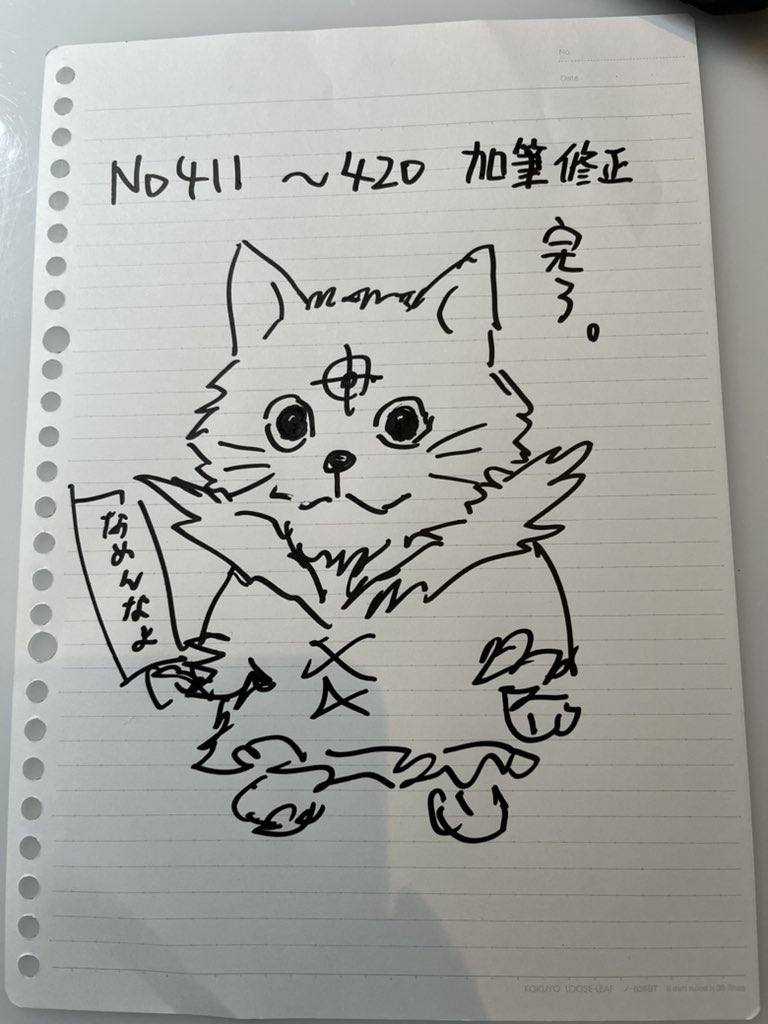 No.
Date
No411 ～420 加筆修正
完了。
なめんなよ
KOKUYO LOOSE-LEAF ノ-836BT 6 mm ruled × 36 lines